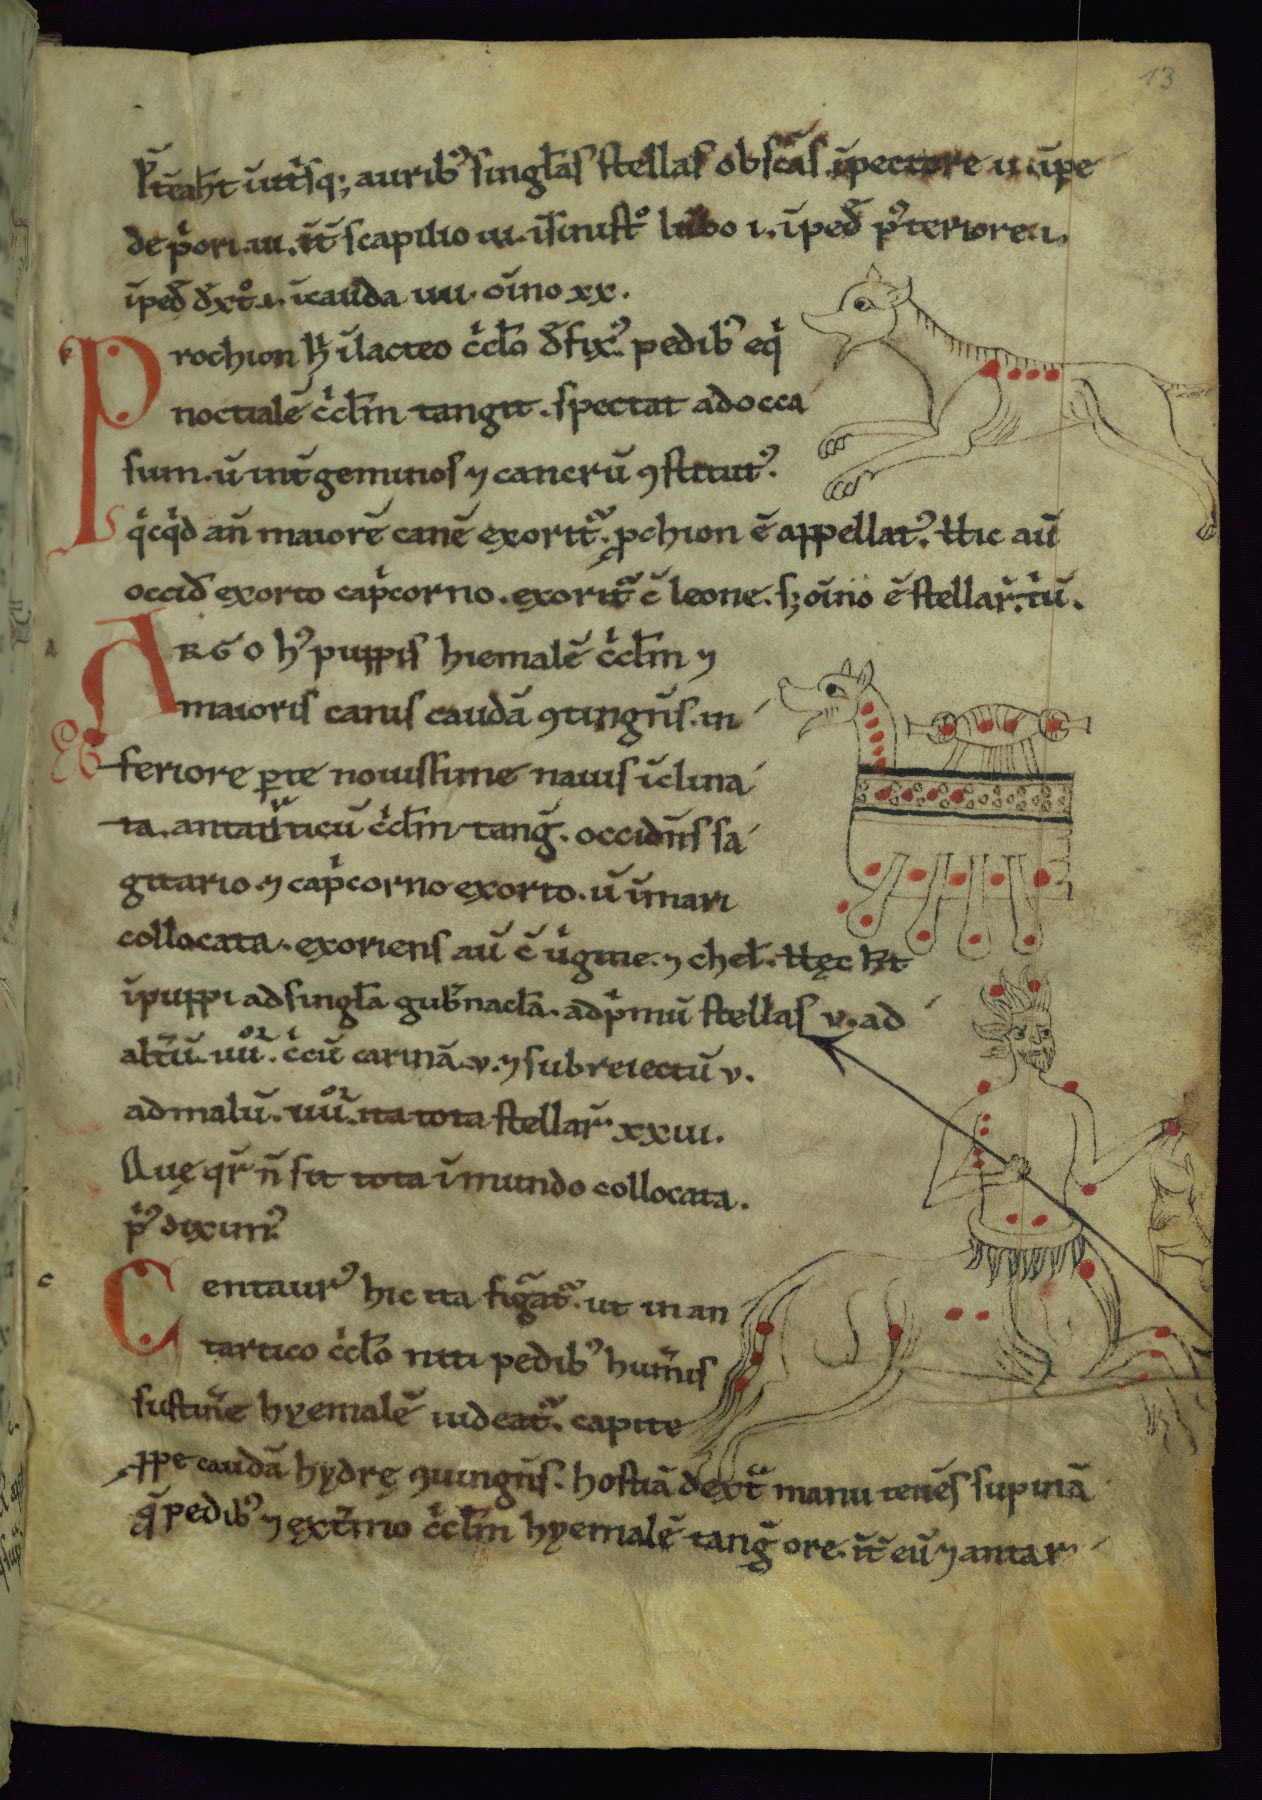 13
p̄t̄eah̄t ut̄sq; auribꝰ singlas̄ stellas obscās. īpectore ii. īpe
de p̄ori. iii. īt̄ scapilio iii. ī sinistº lūbo i. īped̄ pꝰteriore i.
īped̄ dxt̄º i. īcauda iiii. oīno xx.
Prochion h̄ īlacteo c̄clo d̄fixꝰ. pedibꝰ eq̄
noctialē c̄clm̄ tangit. spectat adocca
sum. ū int̄ geminos ⁊ cancrū ꝯstitutꝰ.
q̄cq̄d an̄ maiorē canē exorit᷑. ꝓchion ē appellatꝰ. Hic aū
occid̄ exorto cap̄corno. exorit᷑ c̄ leone. sꝫ oīno ē stellar̄. t̄ū.
ARGO hꝰ puppis hiemalē c̄clm̄ ⁊
maioris canis caudā ꝯtingn̄s. in
feriore ꝑte nouissime nauis īclina
ta. antarticū c̄clm̄ tanḡ. occidn̄s sa
gittario ⁊ cap̄corno exorto. ū īmari
collocata. exoriens aū c̄ ūgine. ⁊ chel̄. Hęc h̄t
īpuppi adsingl̄a gub̄nacl̄a. adp̄mū stellas v. ad
alt̄ū. uū. c̄cū carinā. v. ⁊ subreiectū v.
admalū. uū. ita tota stellar̄ xxiii.
Quę qr̄ n̄ sit tota īmundo collocata.
p̄ꝰ diximꝰ
Centaurꝰ hic ita figat᷑. ut in an
tartico c̄clo niti pedibꝰ hum̄is
sustin̄e hyemalē uideat᷑. capite
ꝓpe caudā hydrę ꝯiungn̄s. hostiā dext̄ manu tenēs supinā
q̄ pedibꝰ ⁊ ext̄mo c̄clm̄ hyemalē tanḡ ore. īt̄ eū ⁊ antar